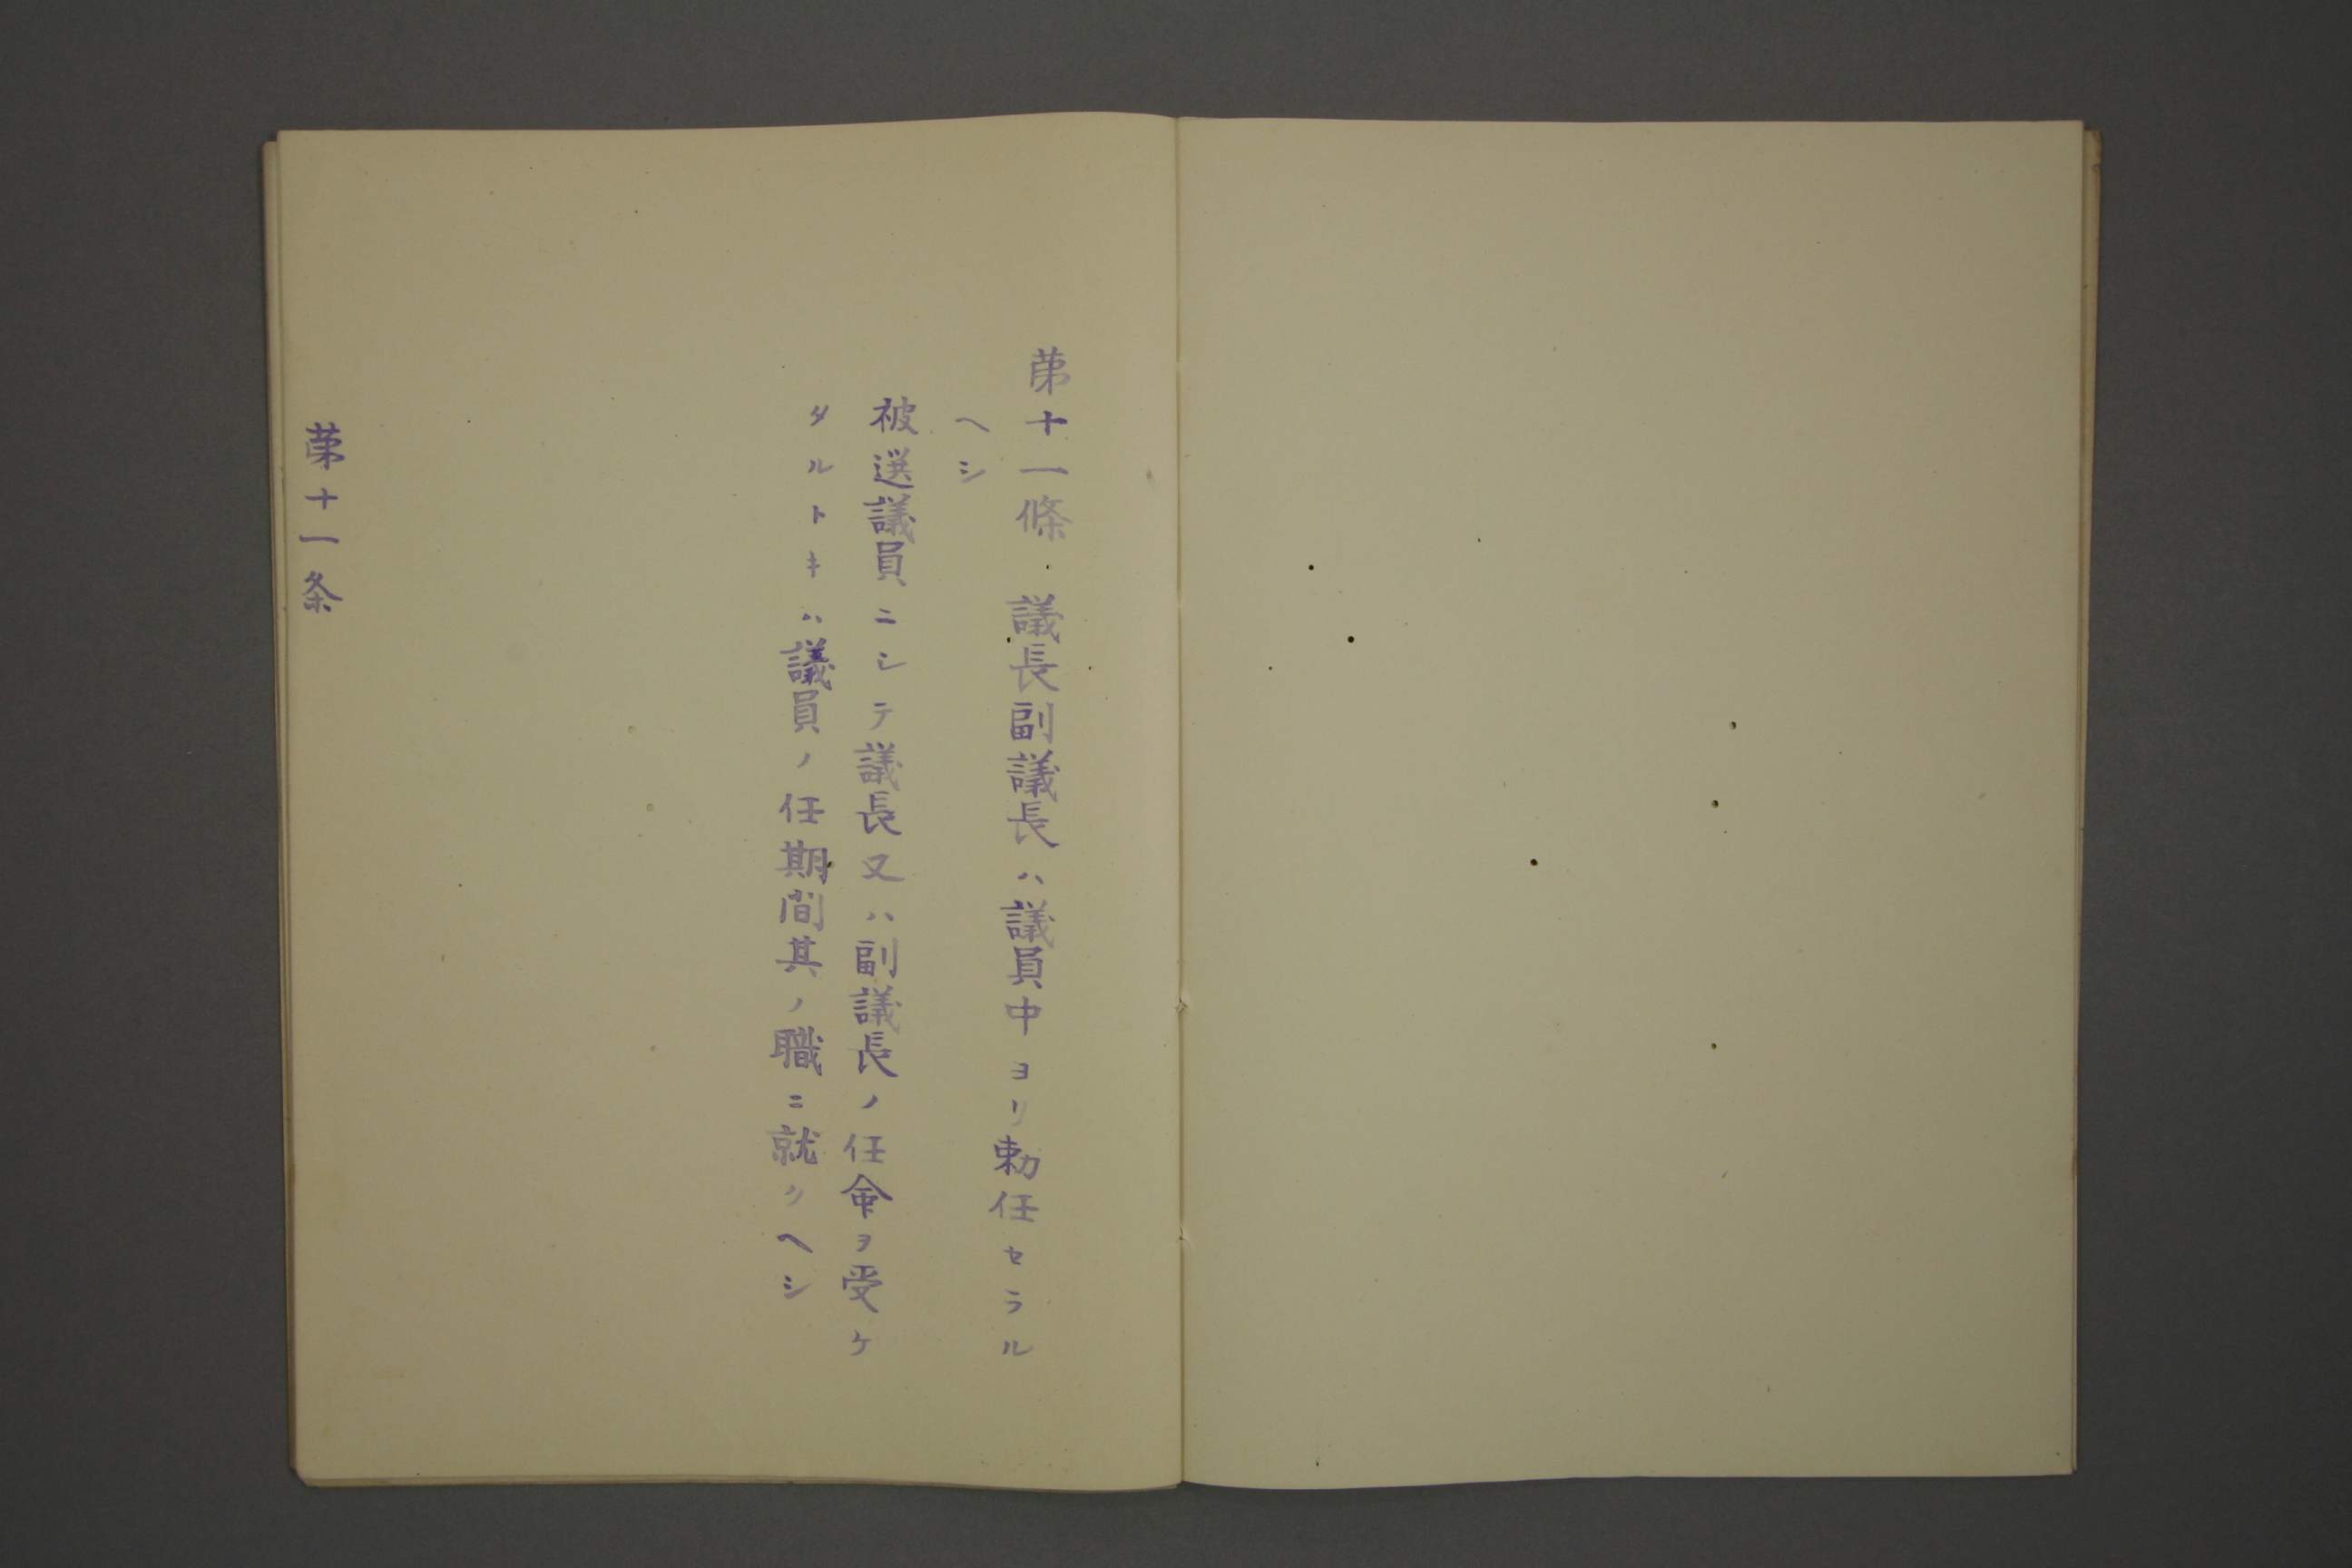 第十一條　議長副議長ハ議員中ヨリ勅任セラル
ヘシ
被選議員ニシテ議長又ハ副議長ノ任命ヲ受ケ
タルトキハ議員ノ任期間其ノ職ニ就クヘシ
第十一条